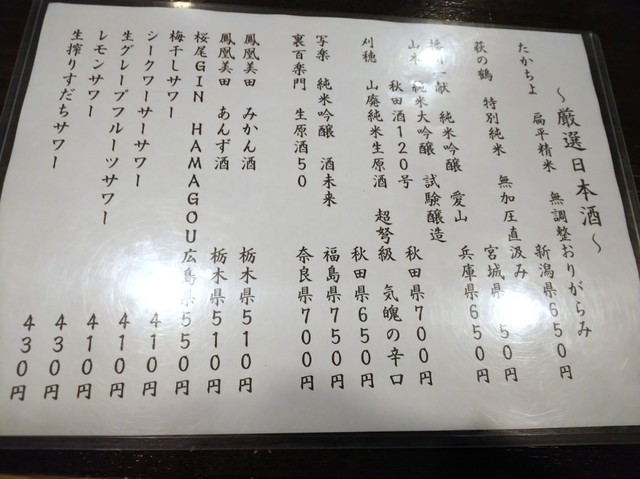 ～厳選日本酒～
たかちよ 扁平精米 無調整おりがらみ
新潟県650円
萩の鶴 特別純米 無加圧直汲み
宮城県 50円
播州一献 純米吟醸 愛山
兵庫県650円
山本 純米大吟醸 試験醸造
秋田酒120号 秋田県700円
刈穂 山廃純米生原酒 超弩級 気魄の辛口
秋田県650円
写楽 純米吟醸 酒未来
福島県750円
裏百楽門 生原酒50 奈良県700円
鳳凰美田 みかん酒 栃木県510円
鳳凰美田 あんず酒 栃木県510円
桜尾GIN HAMAGOU広島県550円
梅干しサワー 410円
シークワーサーサワー 410円
生グレープフルーツサワー 410円
レモンサワー 430円
生搾りすだちサワー 430円